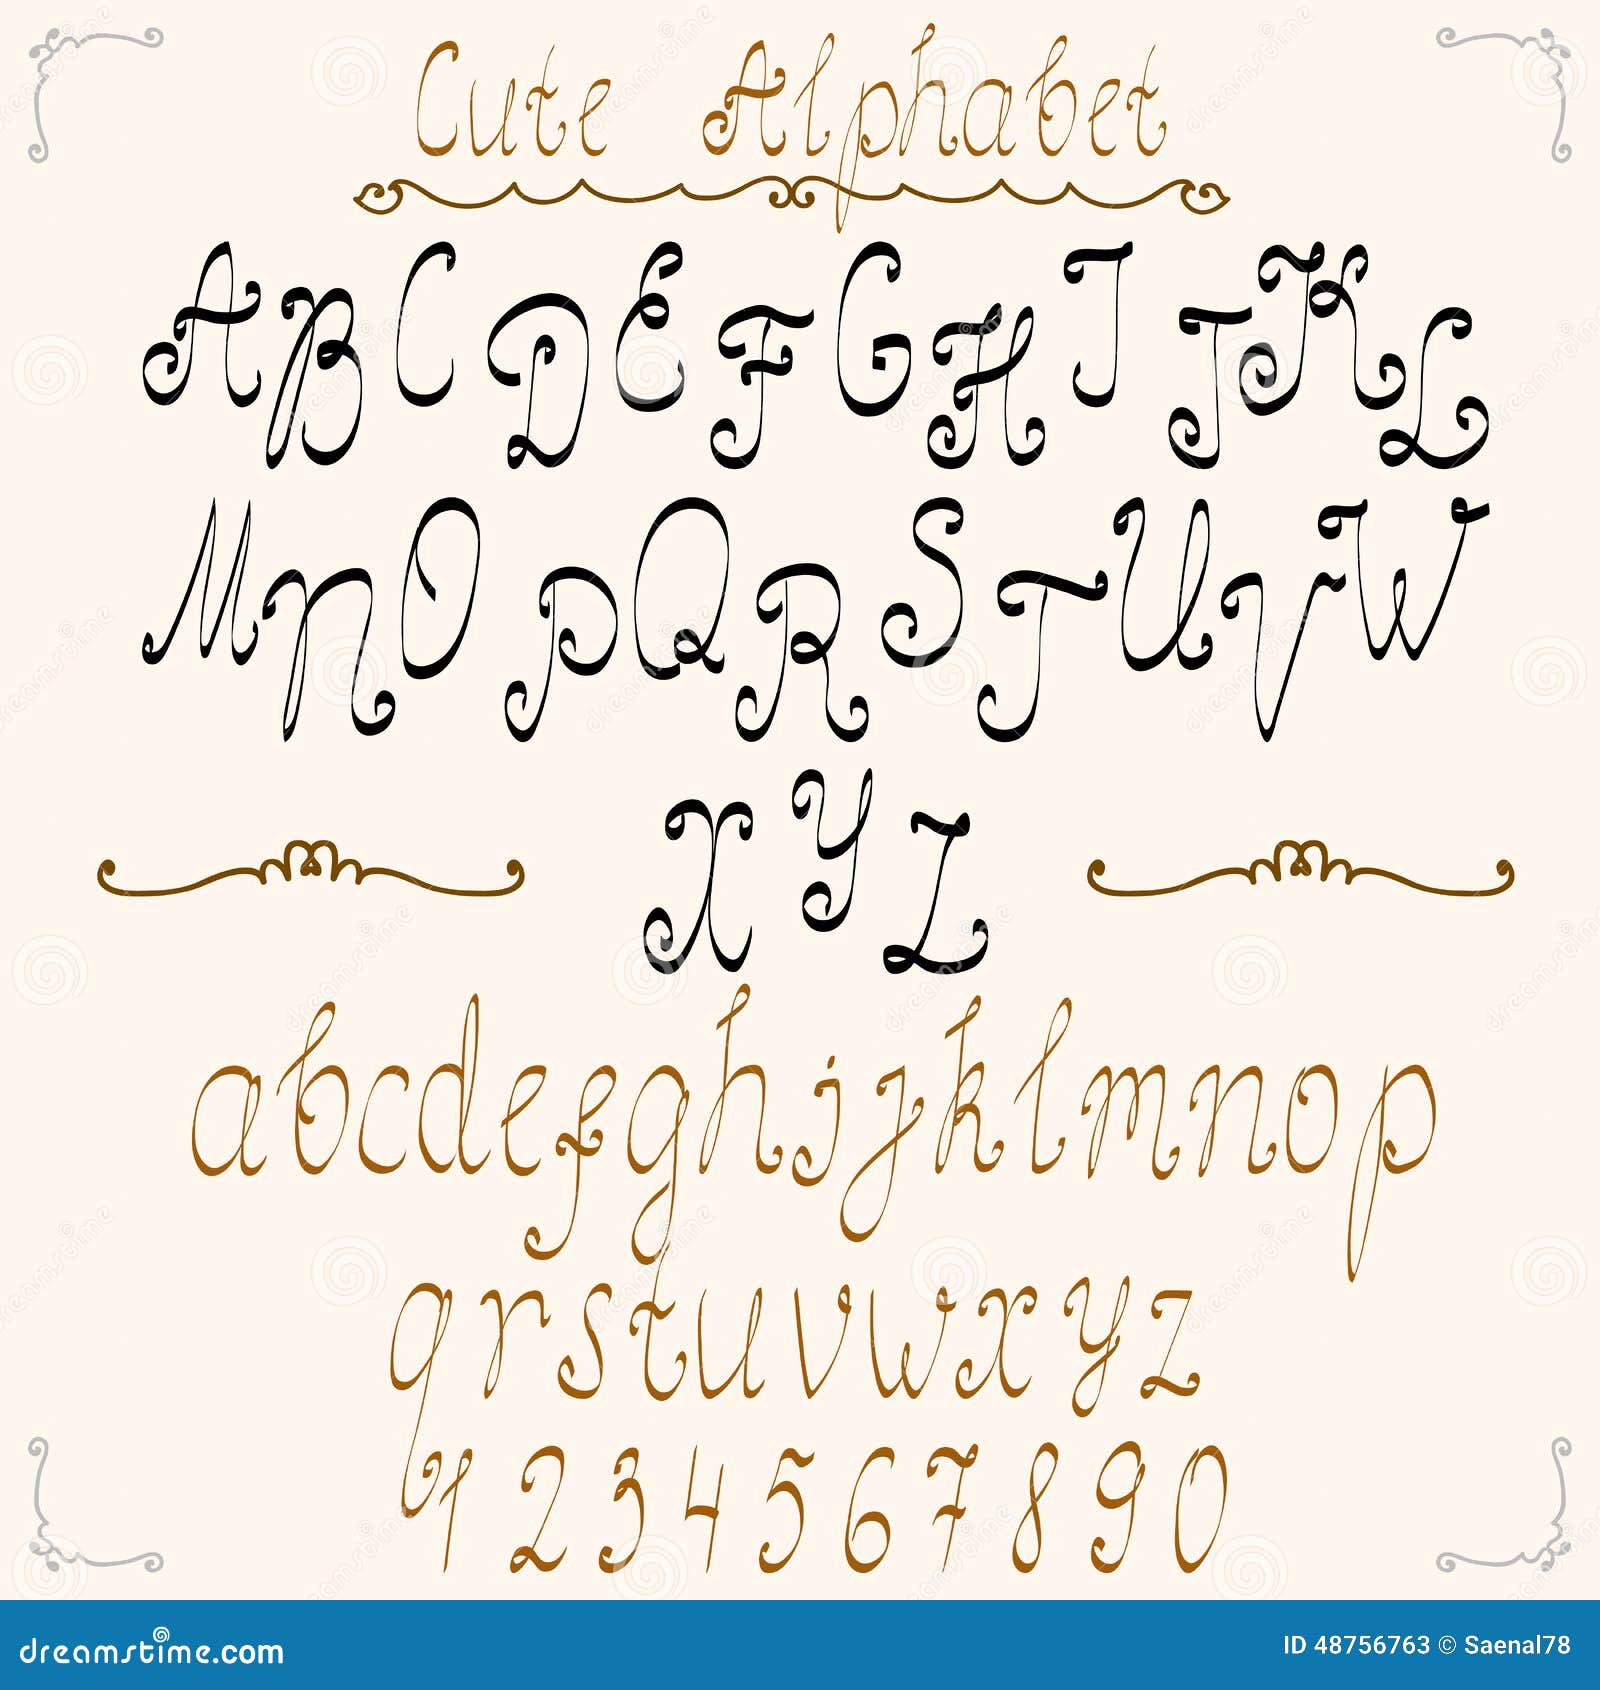 Cute Alphabet
ABCDEFGHIJKL
MNOPQRSTUVW
XYZ
abcdefghijklmnop
qrstuvwxyz
1234567890
dreamstime.com
ID 48756763 © Saenal78